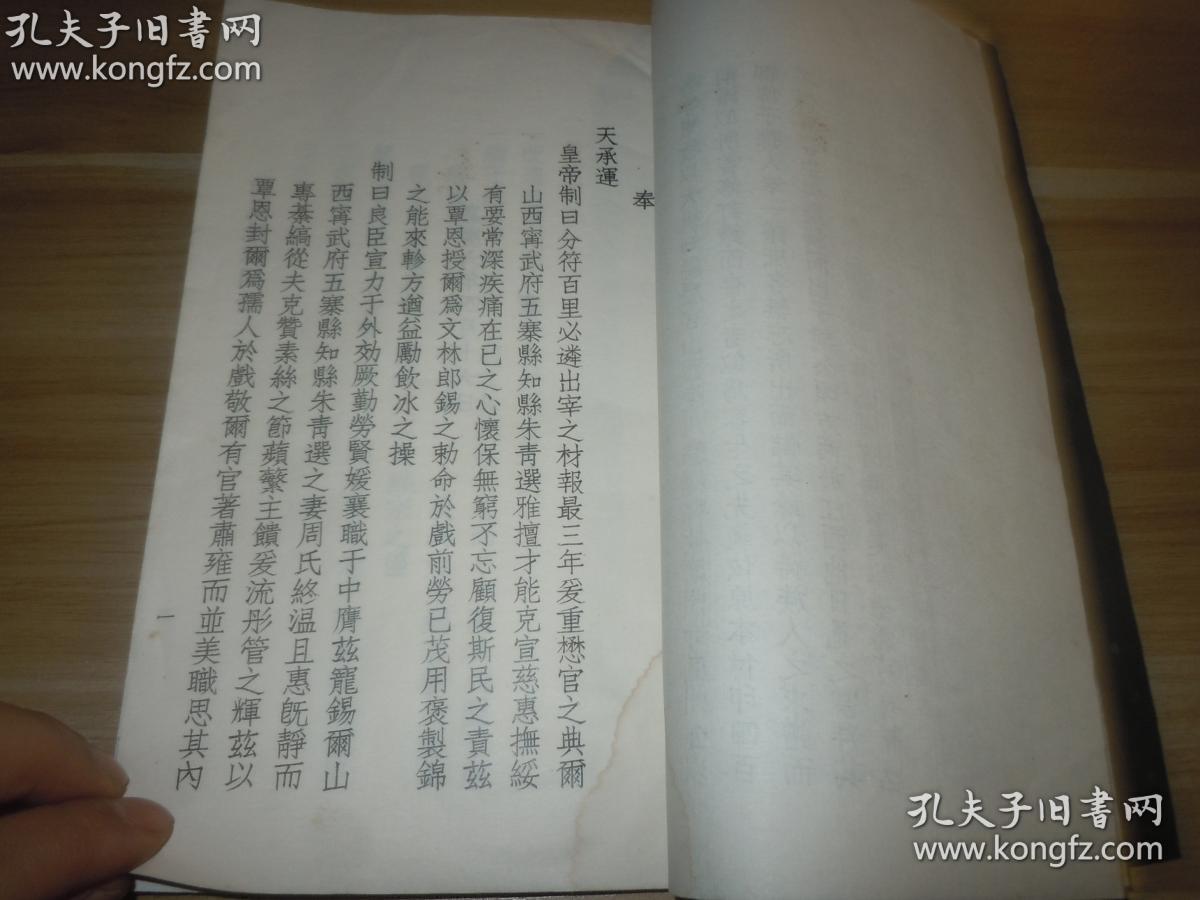 孔夫子旧书网
www.kongfz.com
奉
天承運
皇帝制曰分符百里必遴出宰之材報最三年爰重懋官之典爾
山西寧武府五寨縣知縣朱靑選雅擅才能克宣慈惠撫綏
有要常深疾痛在已之心懷保無窮不忘顧復斯民之責茲
以覃恩授爾爲文林郎錫之勅命於戲前勞已茂用褒製錦
之能來軫方遒益勵飲冰之操
制曰良臣宣力于外効厥勤勞賢媛襄職于中膺茲寵錫爾山
西寧武府五寨縣知縣朱靑選之妻周氏終温且惠旣靜而
專綦縞從夫克贊素絲之節蘋蘩主饋爰流彤管之輝茲以
覃恩封爾爲孺人於戲敬爾有官著肅雍而並美職思其內
一
孔夫子旧书网
www.kongfz.com